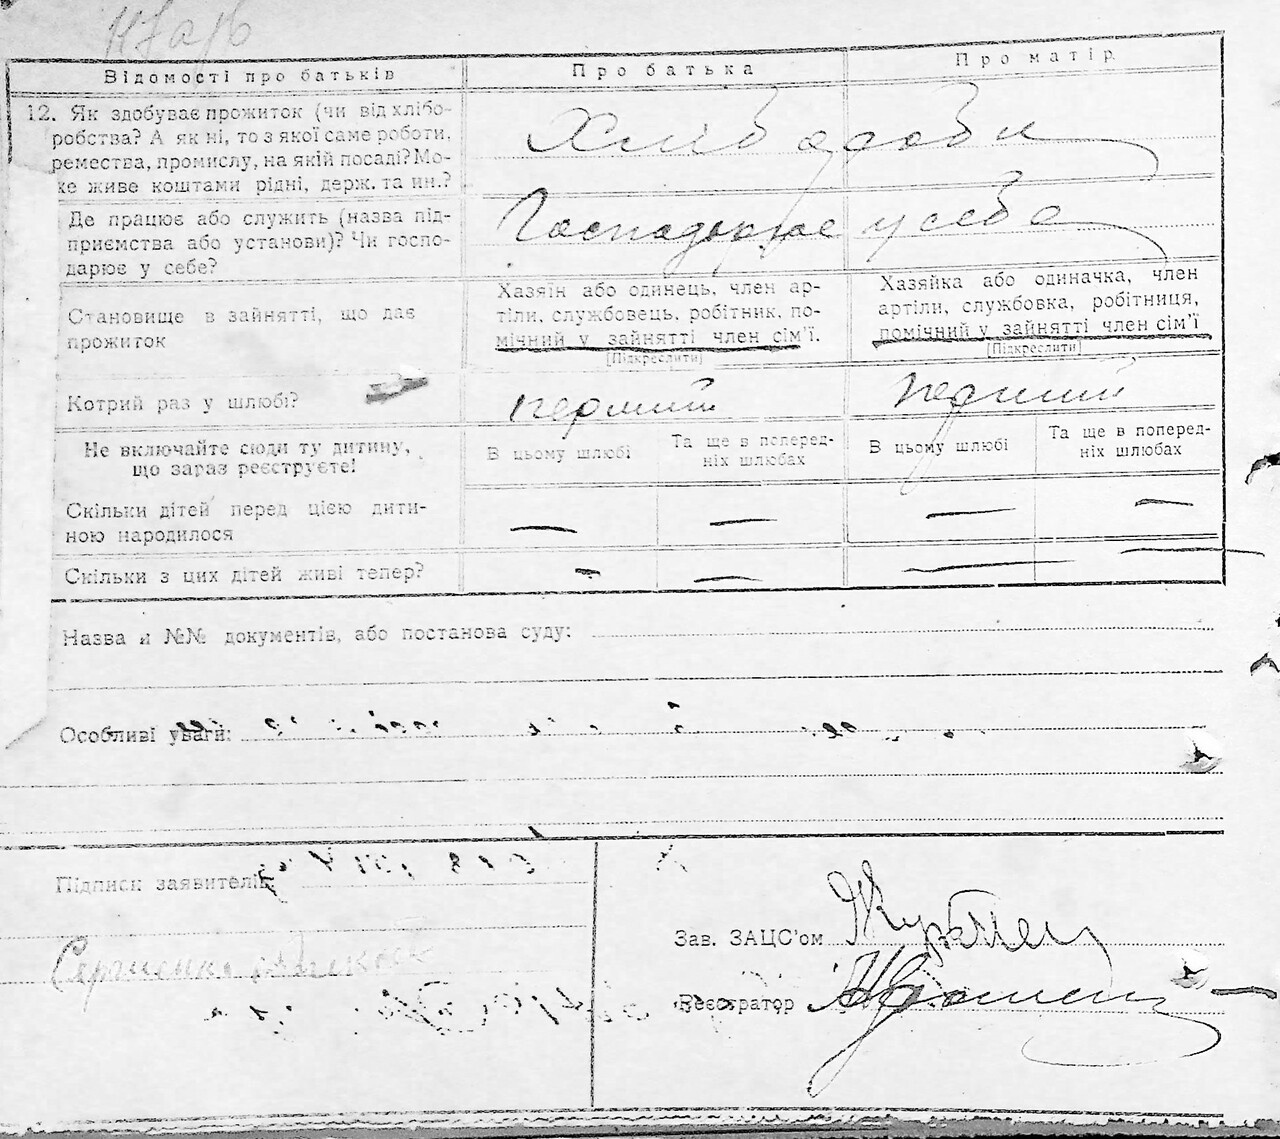 Відомості про батьків Про батька Про матір
12. Як здобуває прожиток (чи від хлібо-
робства? А як ні, то з якої саме роботи,
ремества, промислу, на якій посаді? Мо-
же живе коштами рідні, держ. та ин.?
Хлібороби
Де працює або служить (назва під-
приємства або установи)? Чи госпо-
дарює у себе?
Господарює у себе
Становище в зайнятті, що дає
прожиток
Хазяїн або одинець, член ар-
тіли, службовець, робітник, по-
мічний у зайнятті член сім'ї.
[Підкреслити]
Хазяйка або одиначка, член
артіли, службовка, робітниця,
помічний у зайнятті член сім'ї
[Підкреслити]
Котрий раз у шлюбі? перший перший
Не включайте сюди ту дитину,
що зараз реєструєте!
В цьому шлюбі
Та ще в поперед-
ніх шлюбах
В цьому шлюбі
Та ще в поперед-
ніх шлюбах
Скільки дітей перед цією дити-
ною народилося
— — — —
Скільки з цих дітей живі тепер? - — — —
Назва й №№ документів, або постанова суду:
Особливі уваги:
Підписи заявителів
Зав. ЗАЦС'ом
Реєстратор